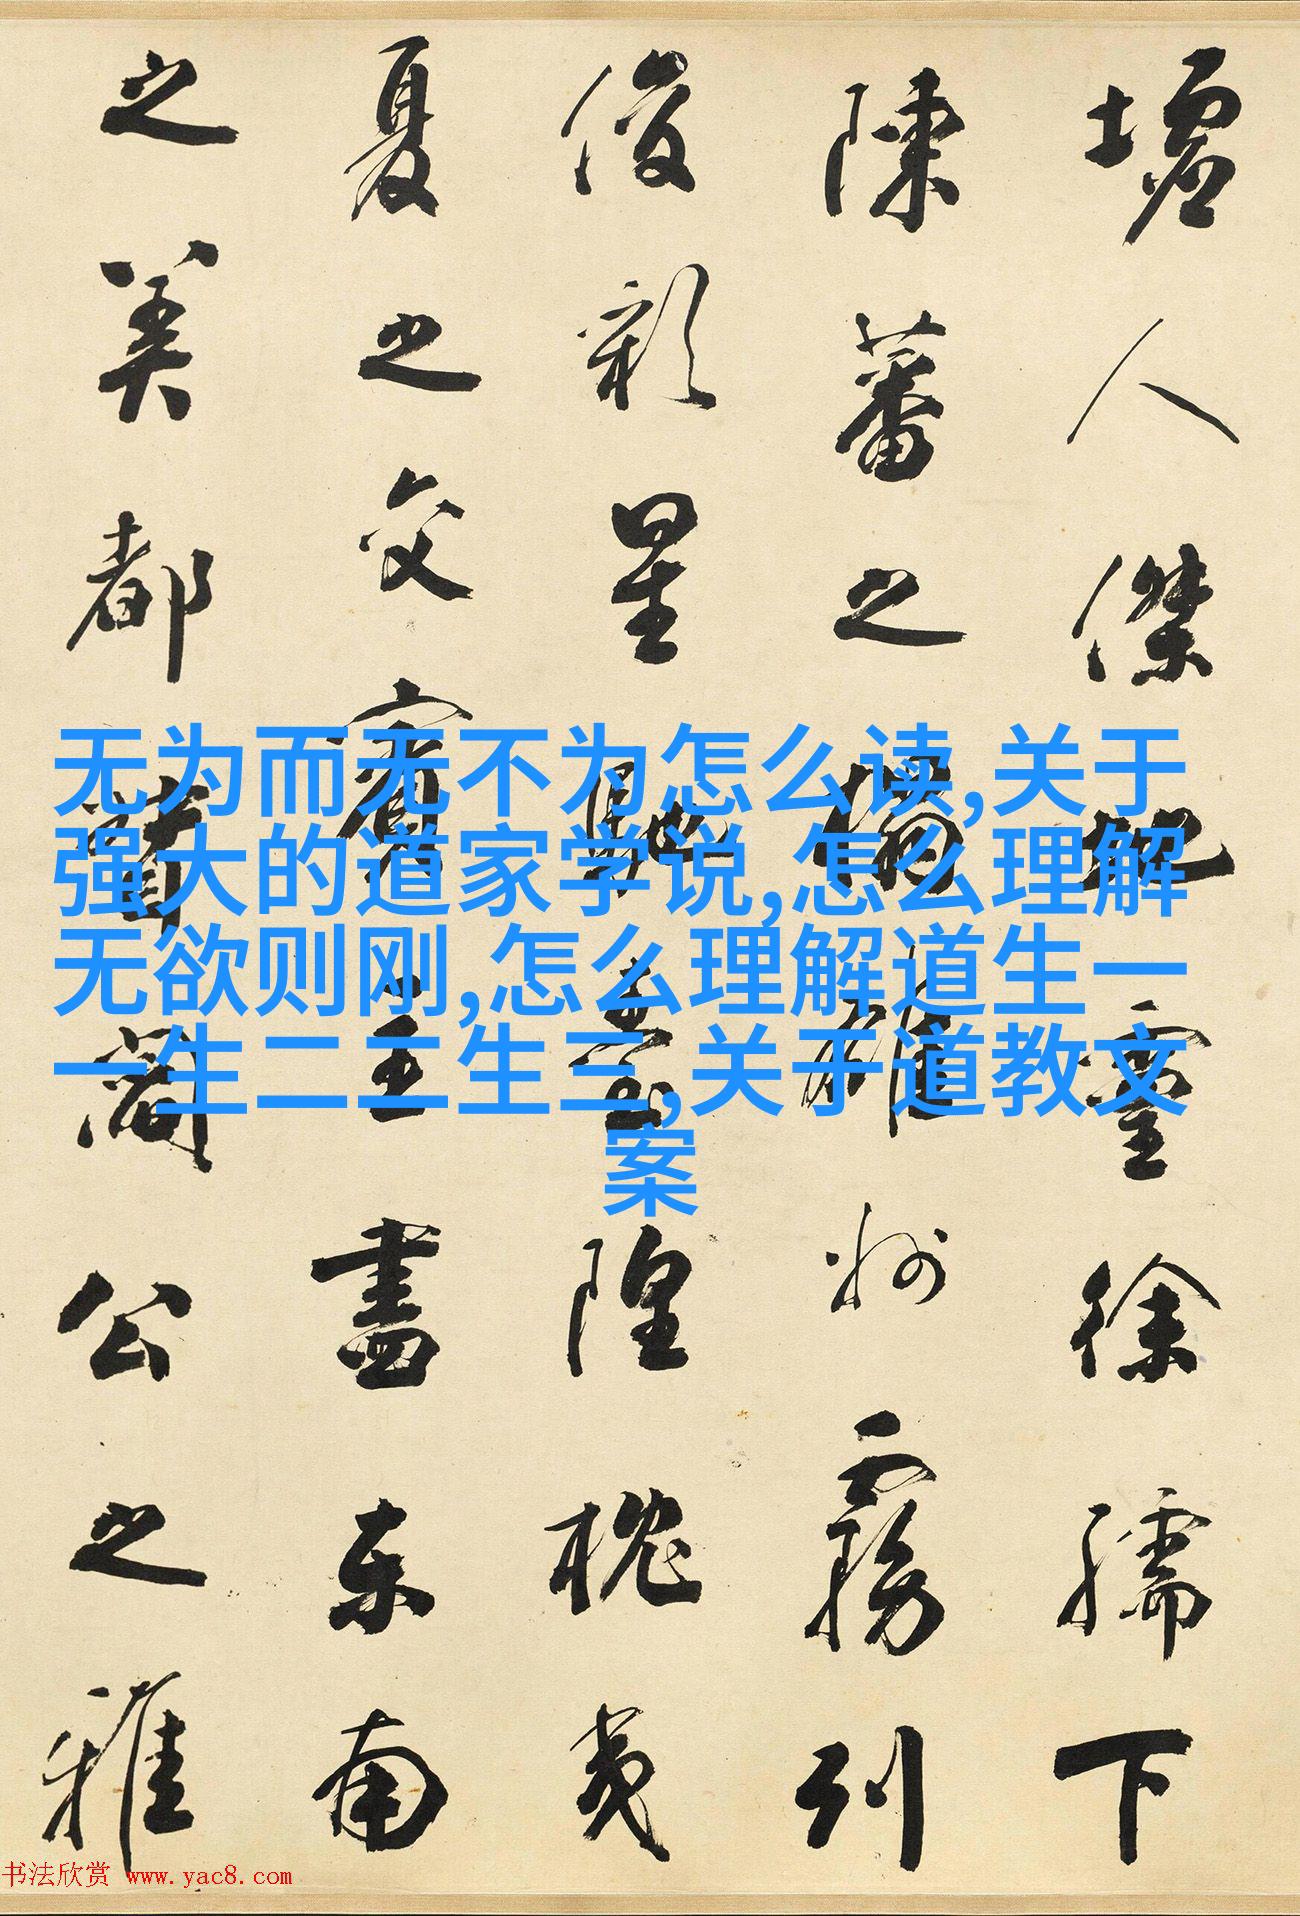 墟人傑地靈徐孺下
陳蕃之榻雄州霧列
俊彩星馳臺隍枕夷
夏之交賓主盡東南
之美都督閻公之雅
无为而无不为怎么读,关于
强大的道家学说,怎么理解
无欲则刚,怎么理解道生一
一生二二生三,关于道教文
案
书法欣赏 www.yac8.com